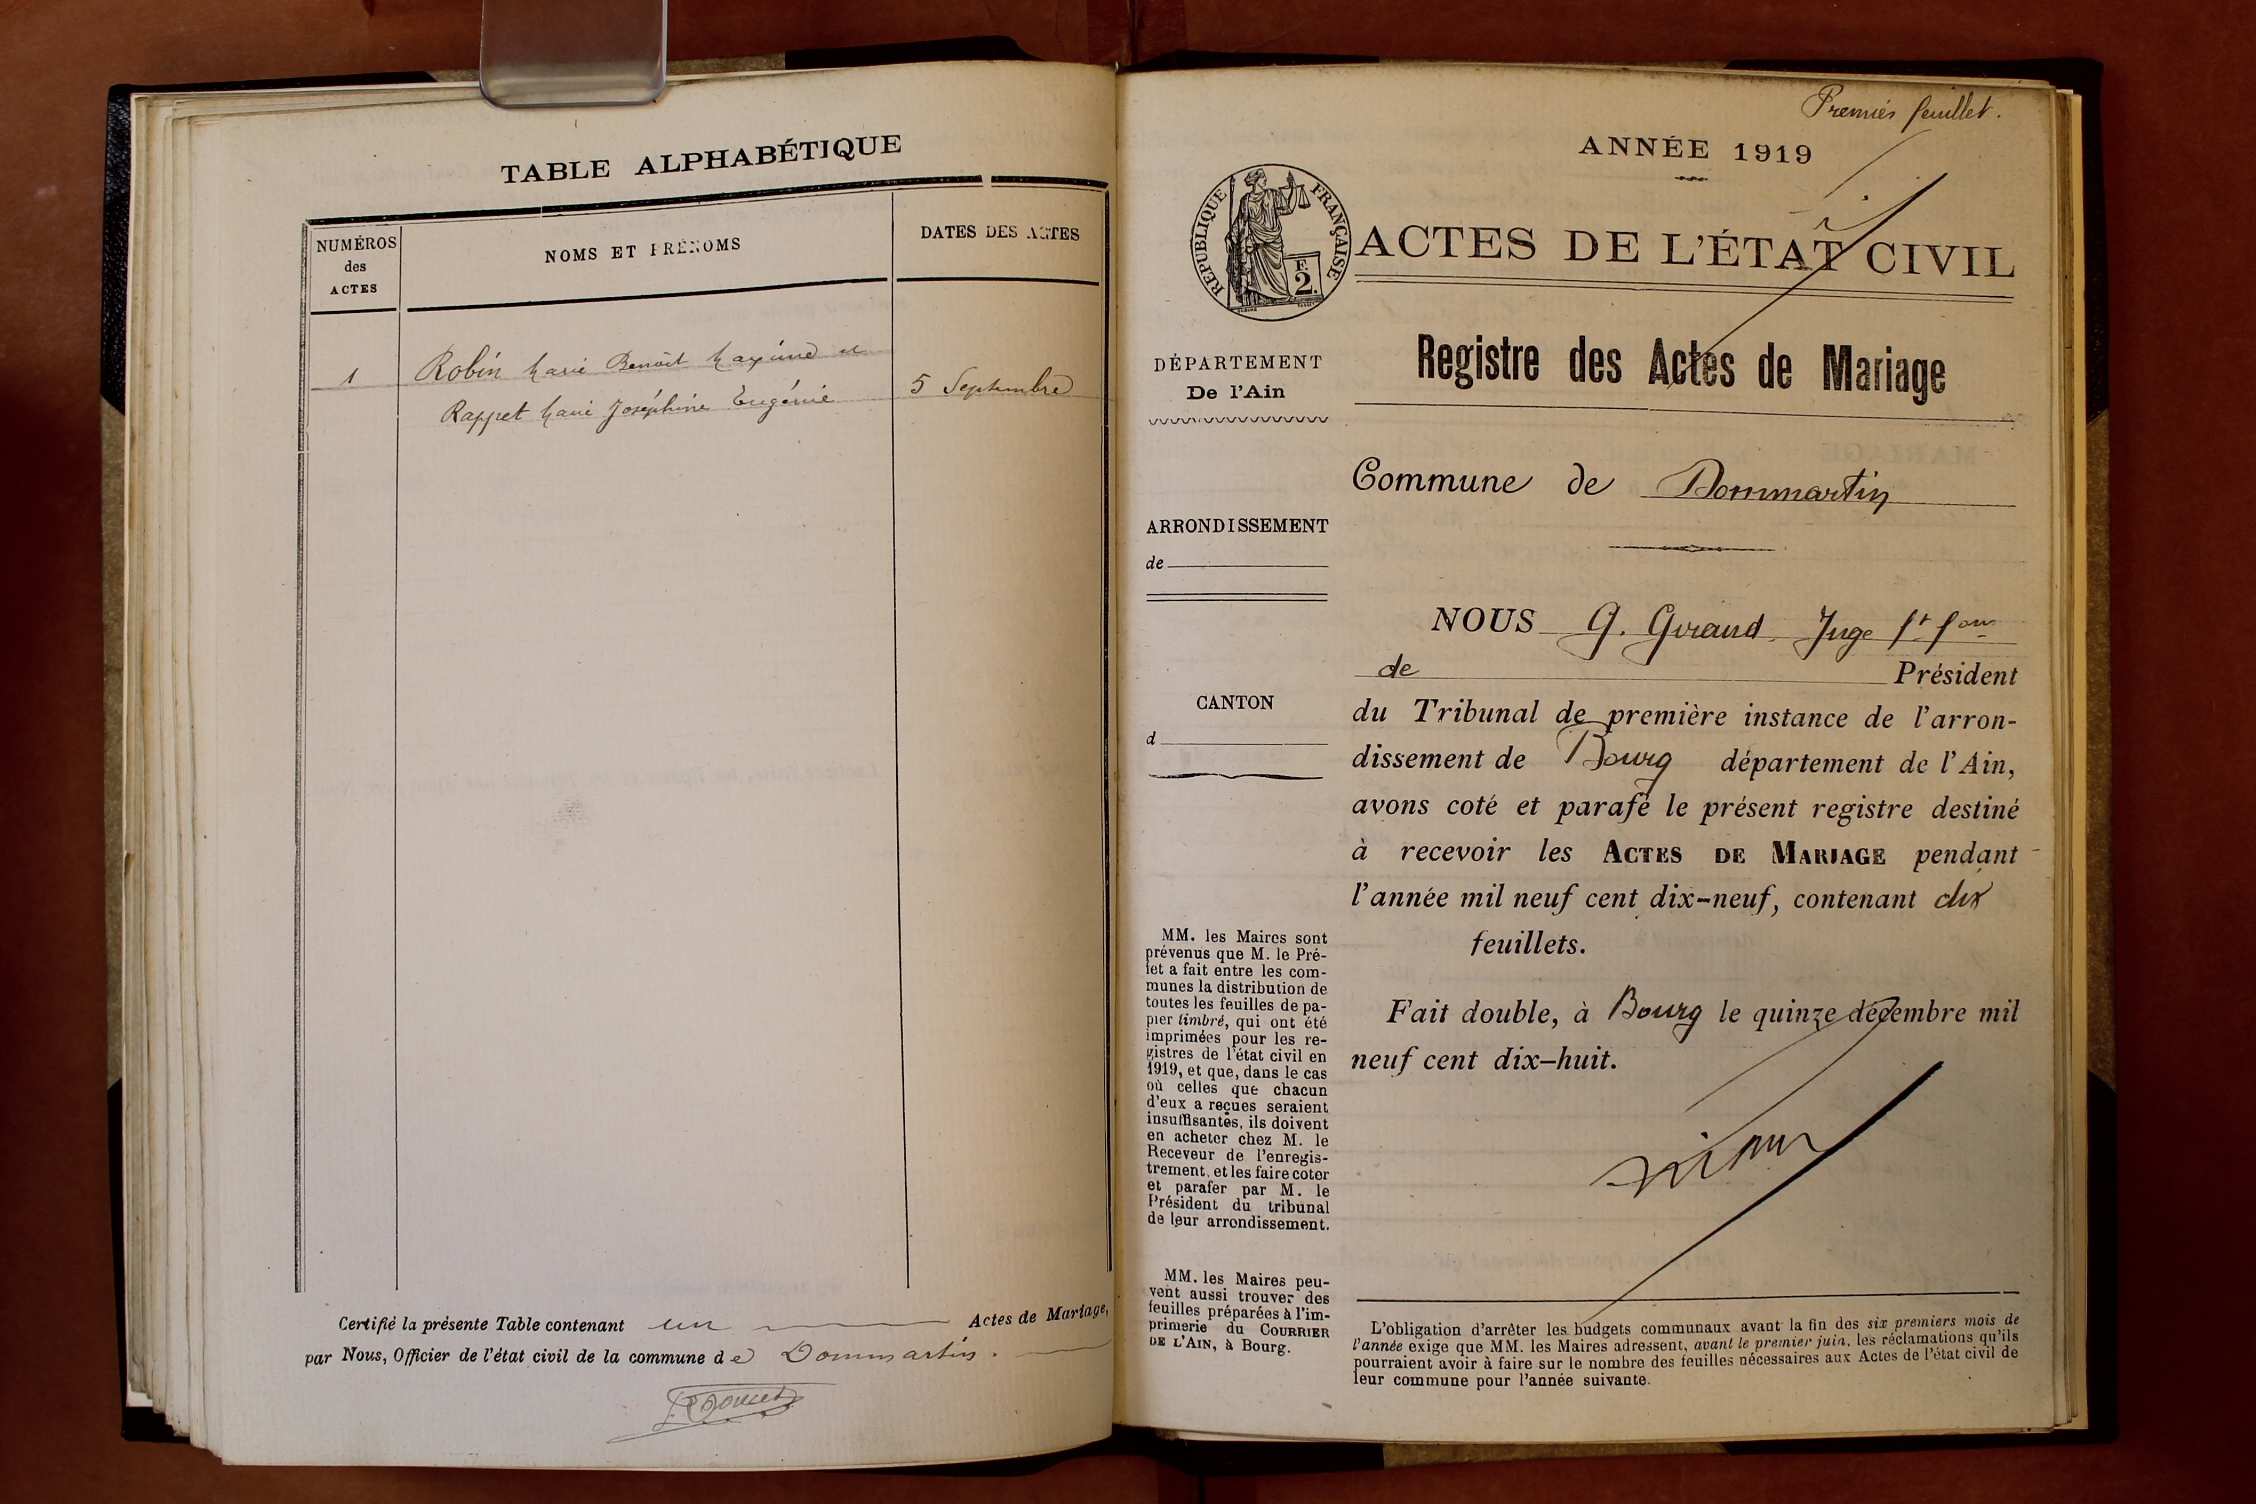 TABLE ALPHABÉTIQUE
NUMÉROS
des
ACTES
NOMS ET PRÉNOMS
DATES DES ACTES
1
Robin Marie Benoît Maxime et
Rappet Marie Joséphine Eugénie
5 Septembre
Certifié la présente Table contenant un Actes de Mariage,
par Nous, Officier de l'état civil de la commune de Dommartin.
Premier feuillet.
ANNÉE 1919
RÉPUBLIQUE FRANÇAISE
2
F.
ACTES DE L'ÉTAT CIVIL
Registre des Actes de Mariage
DÉPARTEMENT
De l'Ain
Commune de Dommartin
ARRONDISSEMENT
de
CANTON
d
NOUS G. Giraud Juge ft fons
de Président
du Tribunal de première instance de l'arron-
dissement de Bourg département de l'Ain,
avons coté et parafé le présent registre destiné
à recevoir les ACTES DE MARIAGE pendant
l'année mil neuf cent dix-neuf, contenant dix
feuillets.
Fait double, à Bourg le quinze décembre mil
neuf cent dix-huit.
MM. les Maires sont
prévenus que M. le Pré-
fet a fait entre les com-
munes la distribution de
toutes les feuilles de pa-
pier timbré, qui ont été
imprimées pour les re-
gistres de l'état civil en
1919, et que, dans le cas
où celles que chacun
d'eux a reçues seraient
insuffisantes, ils doivent
en acheter chez M. le
Receveur de l'enregis-
trement, et les faire coter
et parafer par M. le
Président du tribunal
de leur arrondissement.
MM. les Maires peu-
vent aussi trouver des
feuilles préparées à l'im-
primerie du COURRIER
DE L'AIN, à Bourg.
L'obligation d'arrêter les budgets communaux avant la fin des six premiers mois de
l'année exige que MM. les Maires adressent, avant le premier juin, les réclamations qu'ils
pourraient avoir à faire sur le nombre des feuilles nécessaires aux Actes de l'état civil de
leur commune pour l'année suivante.